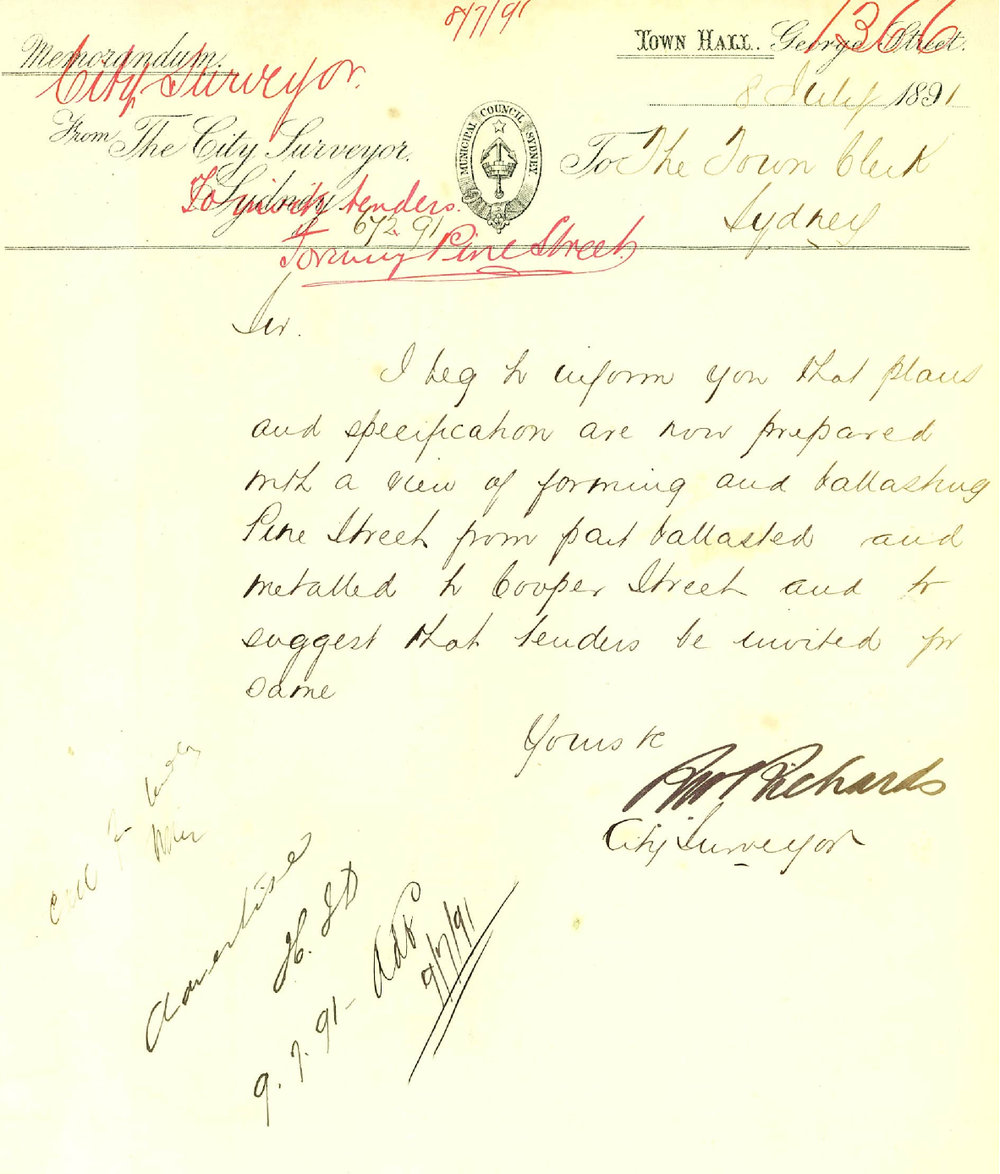 8/7/91
1366
Memorandum.
Town Hall. George Street.
City Surveyor.
8 July 1891
MUNICIPAL COUNCIL SYDNEY
From The City Surveyor.
To The Town Clerk
Sydney
To invite tenders.
Sydney
672.91
Forming Pine Street
Sir.
I beg to inform you that plans
and specification are now prepared
with a view of forming and ballasting
Pine Street from part ballasted and
metalled to Cooper Street and to
suggest that tenders be invited for
same
Yours &c
Richards
City Surveyor
call for tenders
Advertise
9.7.91
9/7/91